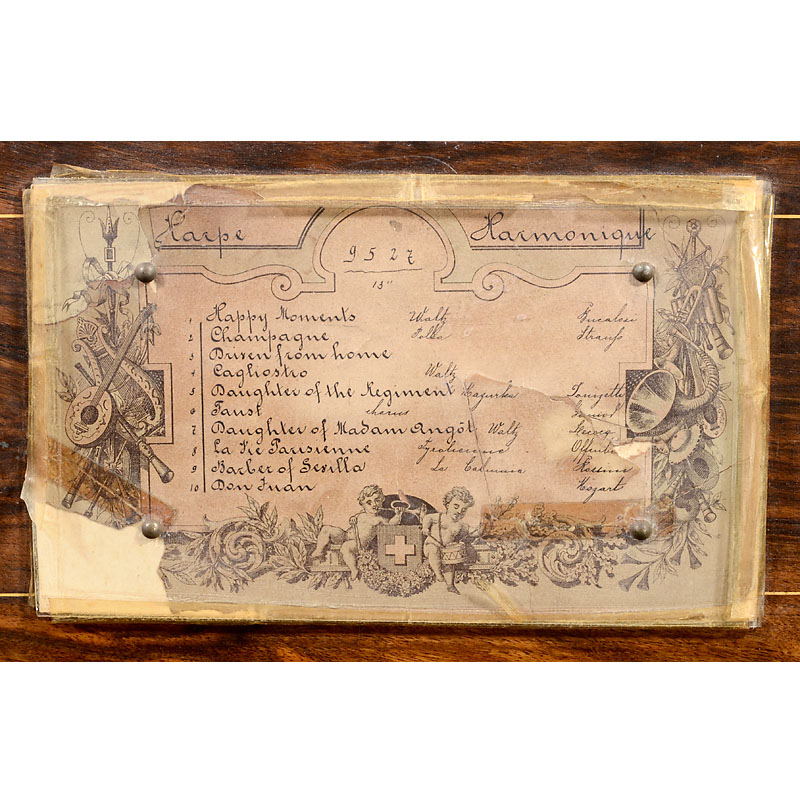 Harpe Harmonique
9527
13"
1 Happy Moments Waltz Bucalosi
2 Champagne Polka Strauss
3 Driven from home
4 Cagliostro Waltz
5 Daughter of the Regiment Mazurka
6 Faust chorus Gounod
7 Daughter of Madam Angôt Waltz Lecocq
8 La Vie Parisienne
9 Barber of Sevilla La Calunnia Rossini
10 Don Juan Mozart